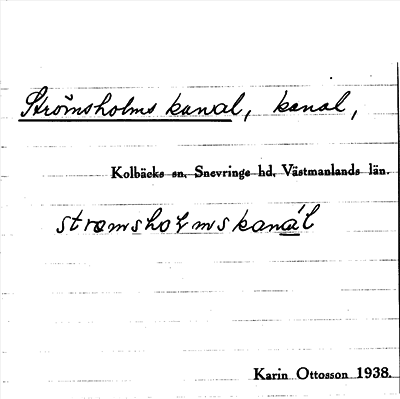 Strömsholms kanal, kanal,
Kolbäcks sn. Snevringe hd, Västmanlands län.
strømshoɫmskanáɫ
Karin Ottosson 1938.